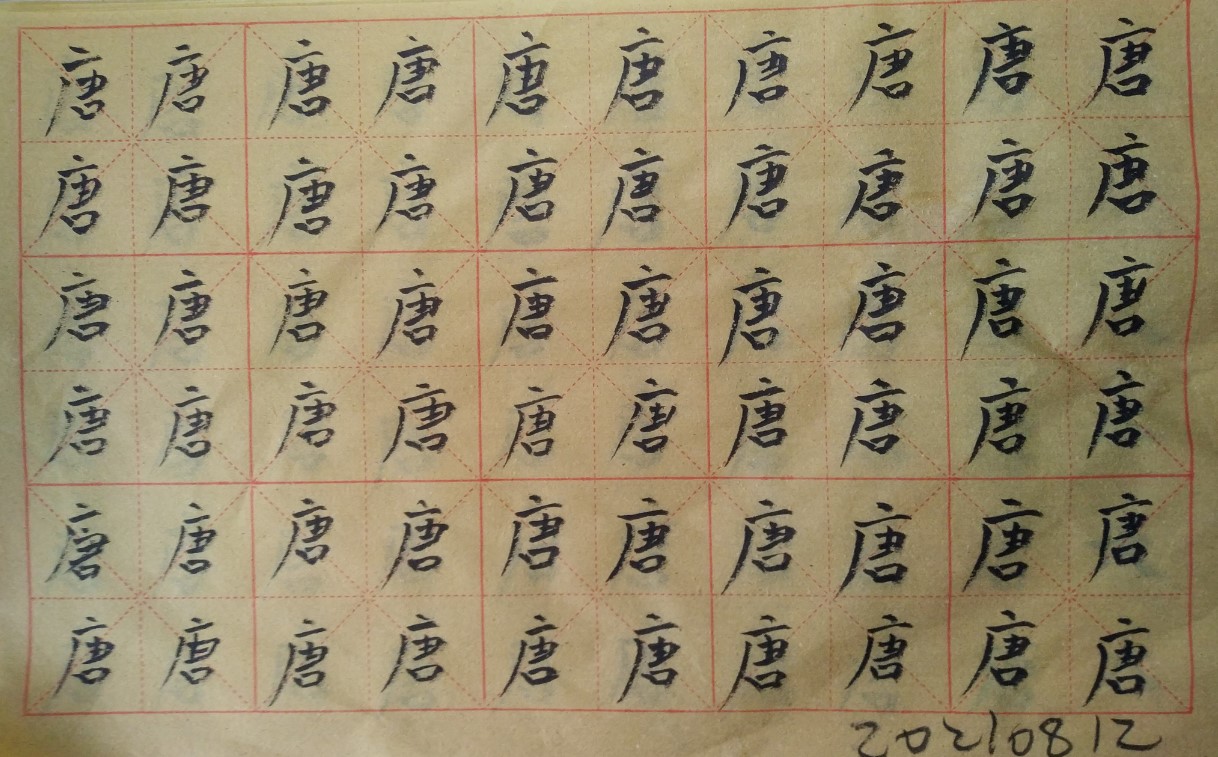 唐唐唐唐唐唐唐唐唐唐
唐唐唐唐唐唐唐唐唐唐
唐唐唐唐唐唐唐唐唐唐
唐唐唐唐唐唐唐唐唐唐
唐唐唐唐唐唐唐唐唐唐
唐唐唐唐唐唐唐唐唐唐
20210812